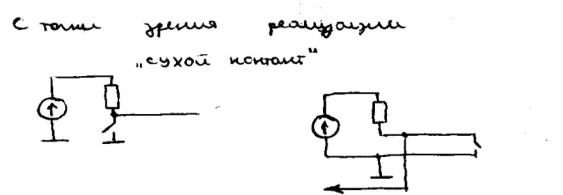 С точки зрения реализации
„сухой контакт“